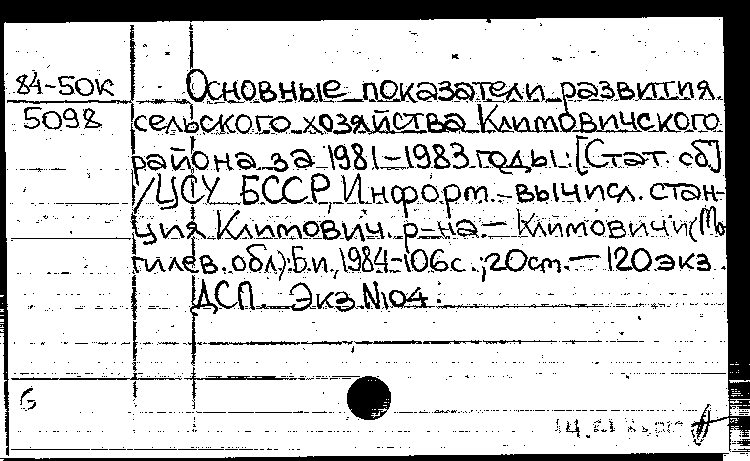 84-50к
5098
Основные показатели развития
сельского хозяйства Климовичского
района за 1981-1983 годы: [Стат. сб]
/ЦСУ БССР, Информ.-вычисл. стан-
ция Климович. р-на.- Климовичи (Мо
гилев. обл.): Б.и., 1984-106с.; 20ст.- 120экз.
ДСП. Экз N104.
б